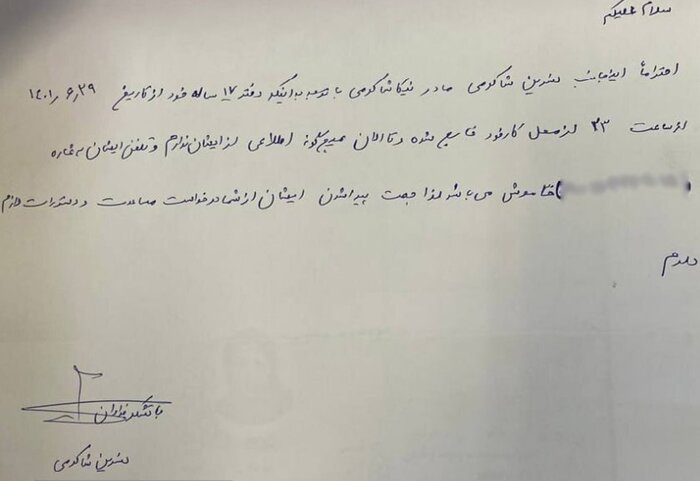 سلام علیکم
احتراماً اینجانب نسرین شاکرمی مادر نیکا شاکرمی با توجه به اینکه دختر ۱۷ ساله خود از تاریخ ۱۴۰۱٫۶٫۲۹
از ساعت ۲۳ از محل کار خود خارج شده و تا الان هیچ گونه اطلاعی از ایشان ندارم و تلفن ایشان به شماره
( ) خاموش می باشد لذا جهت پیدا شدن ایشان از شما درخواست مساعدت و دستورات لازم
دارم
با تشکر فراوان
نسرین شاکرمی